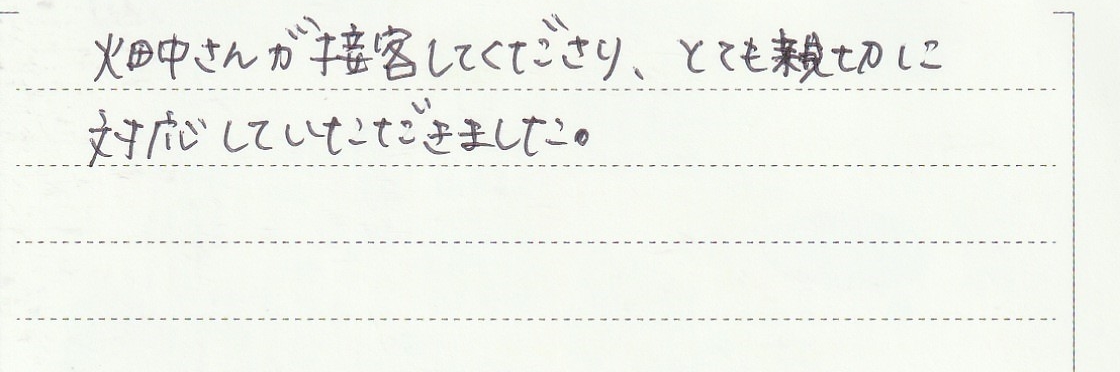 畑中さんが接客してくださり、とても親切に
対応していただきました。